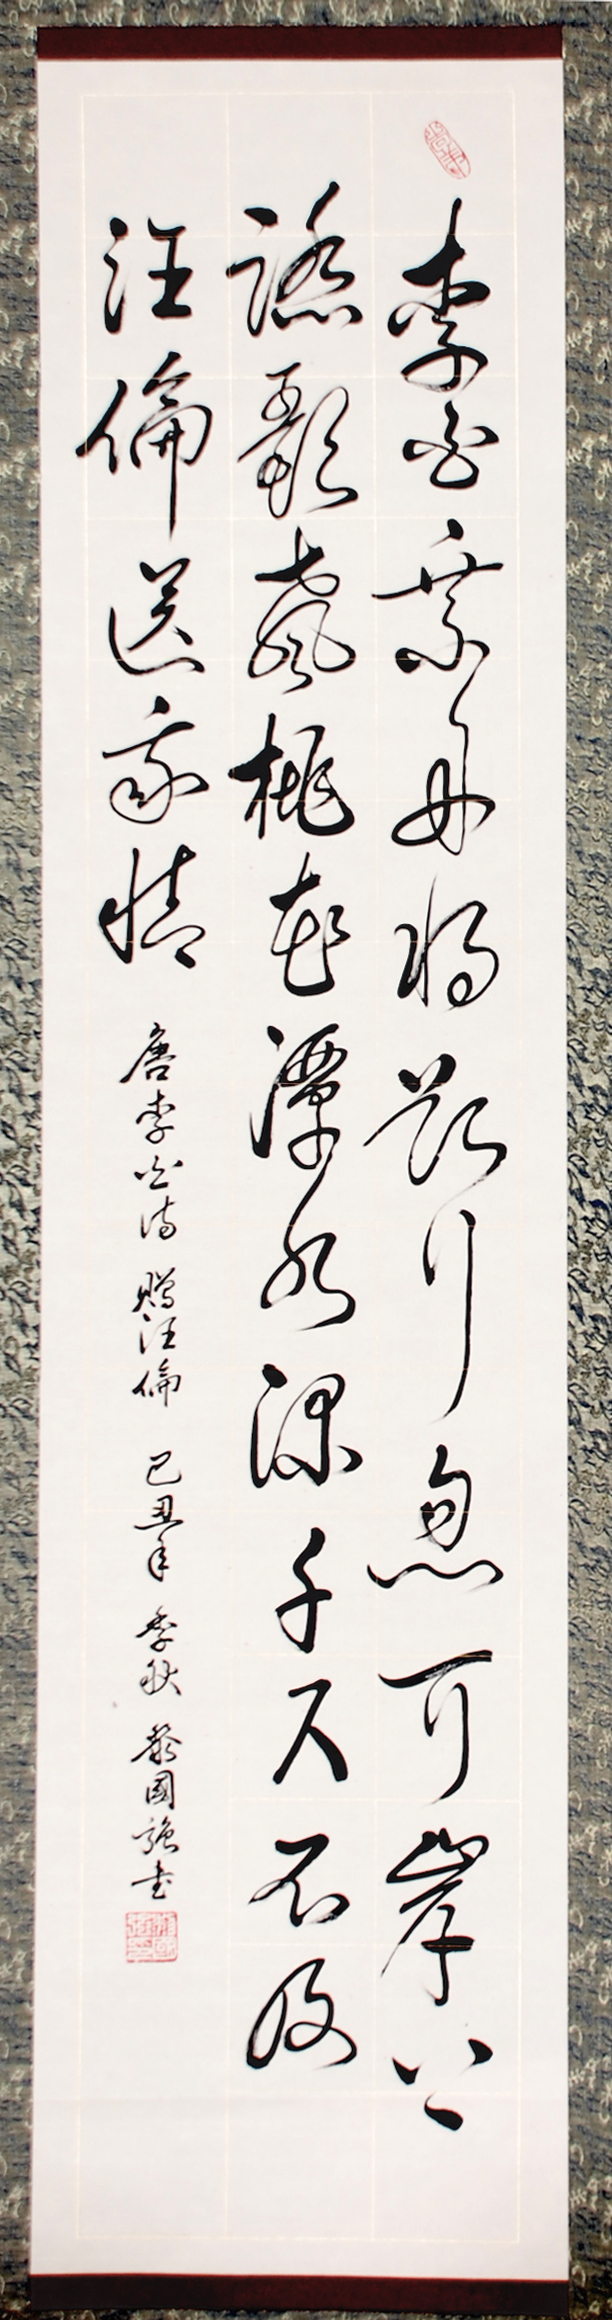 李白乘舟將欲行忽聞岸上
踏歌聲桃花潭水深千尺不及
汪倫送我情 唐李白詩 贈汪倫 己丑年 季秋 國強書